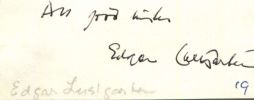 All good wishes
Edgar Lustgarten
Edgar Lustgarten
19